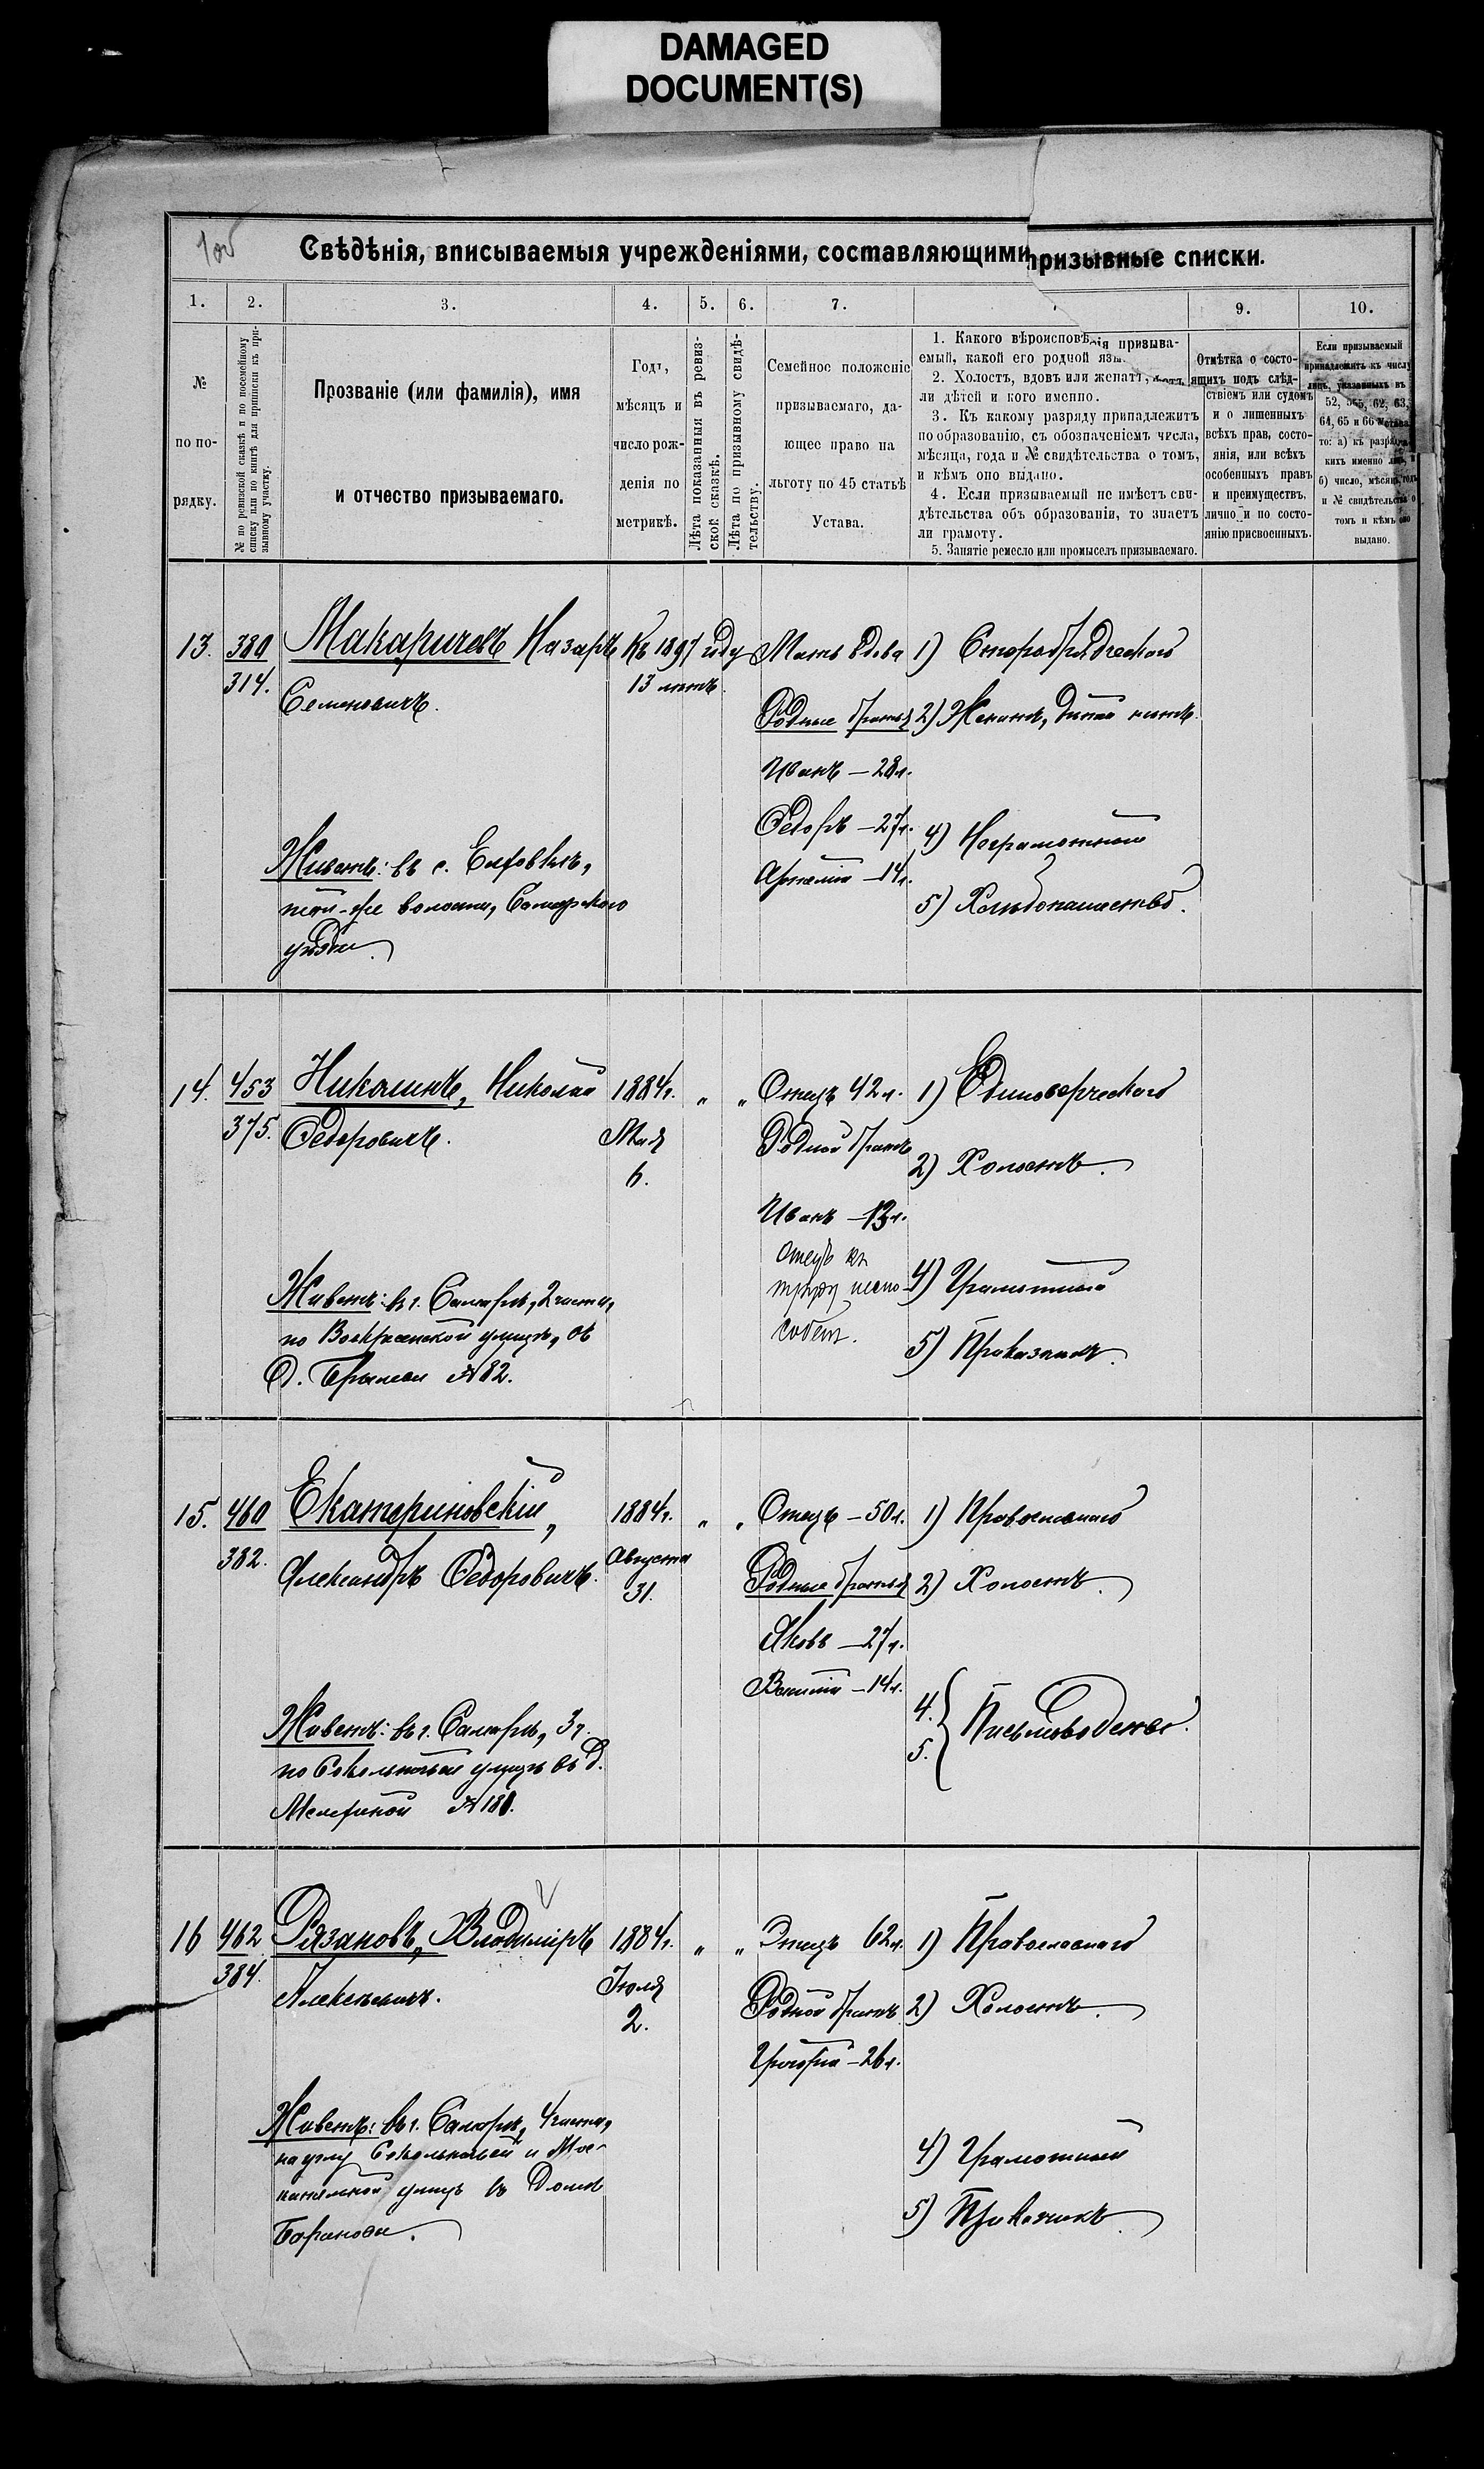 DAMAGED
DOCUMENT(S)
Свѣдѣнія, вписываемыя учрежденіями, составляющими призывные списки.
1. 2. 3. 4. 5. 6. 7. 9. 10.
№
по по-
рядку.
№ по ревизской сказкѣ и по посемейному
списку или по книгѣ для приписки къ при-
зывному участку.
Прозваніе (или фамилія), имя
и отчество призываемаго.
Годъ,
мѣсяцъ и
число рож-
денія по
метрикѣ.
Лѣта показанныя въ ревиз-
ской сказкѣ.
Лѣта по призывному свидѣ-
тельству.
Семейное положеніе
призываемаго, да-
ющее право на
льготу по 45 статьѣ
Устава.
1. Какого вѣроисповѣ призыва-
емый, какой его родной
2. Холостъ, вдовъ или женатъ,
ли дѣтей и кого именно.
3. Къ какому разряду принадлежитъ
по образованію, съ обозначеніемъ числа,
мѣсяца, года и № свидѣтельства о томъ,
и кѣмъ оно выдано.
4. Если призываемый не имѣетъ сви-
дѣтельства объ образованіи, то знаетъ
ли грамоту.
5. Занятіе ремесло или промыселъ призываемаго.
Отмѣтка о состо-
ящихъ подъ слѣд-
ствіемъ или судомъ
и о лишенныхъ
всѣхъ прав, состо-
янія, или всѣхъ
особенныхъ правъ
и преимуществъ,
лично и по состо-
янію присвоенныхъ.
Если призываемый
принадлежитъ къ числу
лицъ, указанныхъ въ
52, 62, 63,
64, 65 и 66
то: а) къ
кихъ именно
б) число, мѣсяцъ,
и № свидѣтельства о
томъ и кѣмъ оно
выдано.
13. 380 Макаричевъ Назаръ Къ 1897 году Мать вдова 1) Старообрядческаго
314. Семеновичъ. 13 лѣтъ.
Родные братья 2) Женатъ, дѣтей нѣтъ.
Иванъ — 28 л.
Федоръ — 27 л. 4) Неграмотный
Живетъ: въ с.
той-же волости, Самарскаго — 14 л. 5) Хлѣбопашество.
уѣзда.
14. 453 Николинъ, Николай 1884 г. „ „ Отецъ 42 л. 1) Единоверческаго
375. Федоровичъ. Мая Родной братъ
6. 2) Холостъ.
Иванъ — 13 л.
Отецъ къ
Живетъ: въ г. Самарѣ, 2 части, труду неспо- 4) Грамотный
по Воскресенской улицѣ, въ собен. 5) Приказчикъ.
д. №82.
15. 460 Екатериновскій, 1884 г. „ „ Отецъ — 50 л. 1) Православнаго
382. Александръ Федоровичъ. Августа
31. Родные братья 2) Холостъ.
Яковъ — 27 л.
Василій — 14 л.
Живетъ: въ г. Самарѣ, 3 ч. 4. 5. Письмоводство.
по Сокольничьей улицѣ въ д.
№ 180.
16 462 Рязановъ, Владиміръ 1884 г. „ „ Отецъ 62 л. 1) Православнаго
384. Алексѣевичъ. Іюля
2. Родной братъ 2) Холостъ.
Григорій — 26 л.
Живетъ: въ г. Самарѣ, 4 части,
на углу Сокольничьей и Мос- 4) Грамотный
улицъ въ домѣ 5) Приказчикъ.
Баранова.